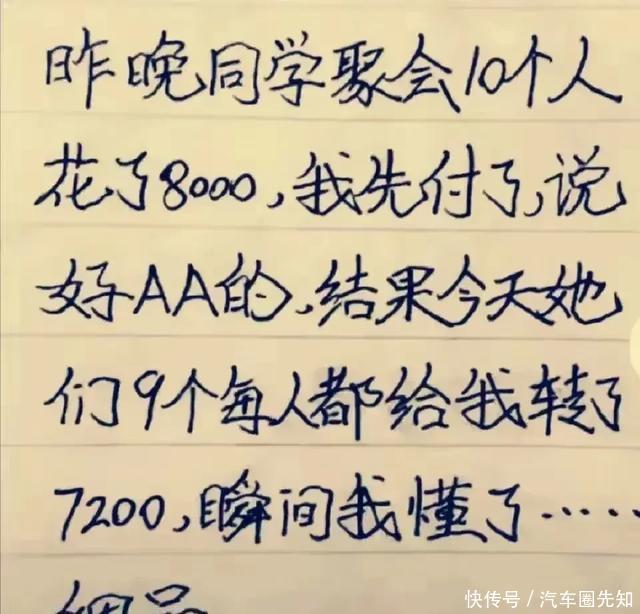 昨晚同学聚会10个人
花了8000，我先付了，说
好AA的，结果今天她
们9个每人都给我转了
7200，瞬间我懂了……
细品
快传号／汽车圈先知